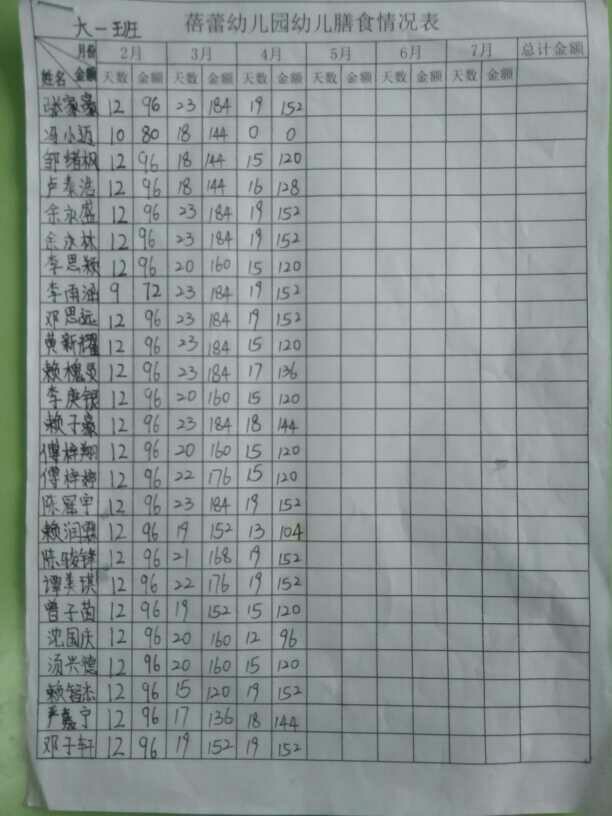 大一班 蓓蕾幼儿园幼儿膳食情况表
月份 2月 3月 4月 5月 6月 7月 总计金额
姓名 金额 天数 金额 天数 金额 天数 金额 天数 金额 天数 金额 天数 金额
张家豪 12 96 23 184 19 152
冯小迈 10 80 18 144 0 0
邹绪枫 12 96 18 144 15 120
卢泰浩 12 96 18 144 16 128
余永盛 12 96 23 184 19 152
余永林 12 96 23 184 19 152
李思颖 12 96 20 160 15 120
李雨涵 9 72 23 184 19 152
邓思远 12 96 23 184 19 152
黄新耀 12 96 23 184 15 120
赖槐 12 96 23 184 17 136
李庚银 12 96 20 160 15 120
赖子豪 12 96 23 184 18 144
傅梓翔 12 96 20 160 15 120
傅梓婷 12 96 22 176 15 120
陈宇 12 96 23 184 19 152
赖润霖 12 96 19 152 13 104
陈骏锋 12 96 21 168 19 152
谭美琪 12 96 22 176 19 152
曾子茵 12 96 19 152 15 120
沈国庆 12 96 20 160 12 96
汤兴德 12 96 20 160 15 120
赖智杰 12 96 15 120 19 152
严嘉宁 12 96 17 136 18 144
邓子轩 12 96 19 152 19 152